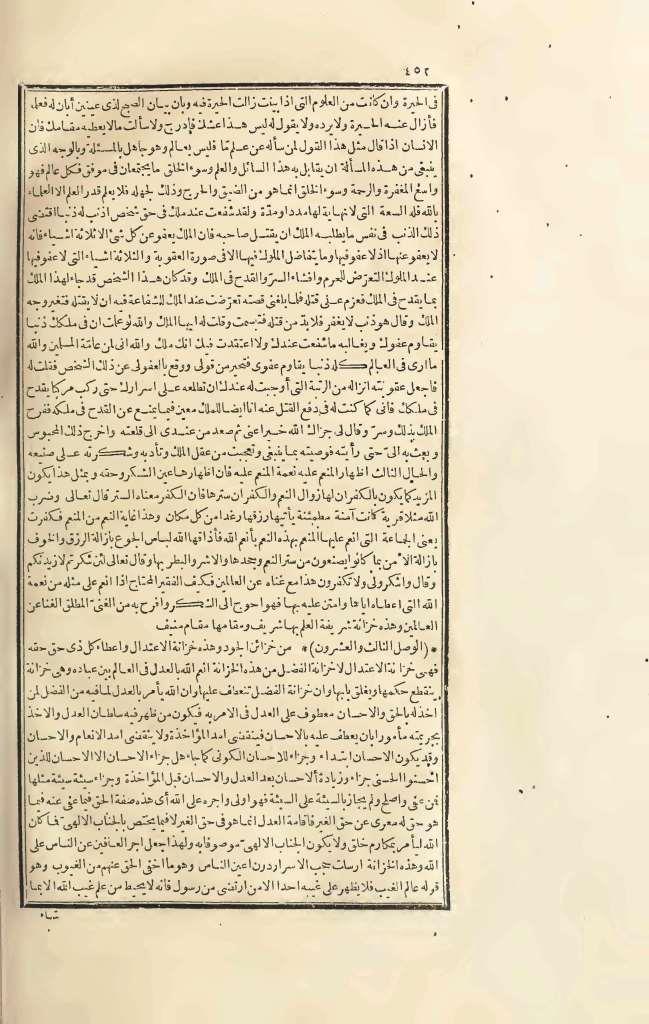 ٤٥٢
فى الحيرة وان كانت من العلوم التى اذا بينت زالت الحيرة فيه وبان بيان الصبح لذى عينين أبان له فعلمه
فأزال عنه الحيرة ولا يرده ولا يقول له ليس هذا عشك فادرج ولا سألت مالا يعطيه مقامك فان
الانسان اذا قال مثل هذا القول لمن سأله عن علم ما فليس بعالم وهو جاهل بالمسئلة وبالوجه الذى
ينبغى من هذه المسألة ان يقابل به هذا السائل والعلم وسوء الخلق ما يجتمعان فى موفق فكل عالم فهو
واسع المغفرة والرحمة وسوء الخلق انما هو من الضيق والحرج وذلك لجهله فلا يعلم قدر العلم الا العلماء
بالله فله السعة التى لا نهاية لها مددا ومدّة ولقد شفعت عند ملك فى حق شخص اذنب له ذنبا اقتضى
ذلك الذنب فى نفس ما يطلبه الملك ان يقتل صاحبه فان الملك يعفو عن كل شئ الا ثلاثة اشياء فانه
لا يعفو عنها اذ لا عفو فيها وما يتفاضل الملوك فيها الا فى صورة العقوبة والثلاثة اشياء التى لا عفو فيها
عند الملوك التعرّض للحرم وافشاء السرّ والقدح فى الملك وقد كان هذا الشخص قد جاء لهذا الملك
بما يقدح فى الملك فعزم على قتله فلما بلغنى قصته تعرّضت عند الملك للشفاعة فيه ان لا يقتله فتغير وجه
الملك وقال هو ذنب لا يغفر فلا بدّ من قتله فتبسمت وقلت له ايها الملك والله لو علمت ان فى ملكك ذنبا
يقاوم عفوك ويغالبه ما شفعت عندك ولا اعتقدت فيك انك ملك والله انى لمن عامّة المسلمين والله
ما ارى فى العالم كله ذنبا يقاوم عفوى فتحير من قولى ووقع بالعفو لى عن ذلك الشخص فقلت له
فاجعل عقوبته انزاله من الرتبة التى أوجبت له عندك ان تطلعه على اسرارك حتى ركب مركبا يقدح
فى ملكك فانى كما كنت له فى دفع القتل عنه انا ايضا للملك معين فيما يمنع عن القدح فى ملكه ففرح
الملك بذلك وسرّ وقال لى جزاك الله خيرا عنى ثم صعد من عندى الى قلعته واخرج ذلك المحبوس
وبعث به الىّ حتى رأيته فوصيته بما ينبغى وتعجبت من عقل الملك وتأدبه وشكرته على صنيعه
والحال الثالث اظهار المنعم عليه نعمة المنعم عليه فان اظهارها عين الشكر وحقه وبمثل هذا يكون
المزيد كما يكون بالكفران لها زوال النعم والكفران سترها فان الكفر معناه الستر قال تعالى وضرب
الله مثلا قرية كانت آمنة مطمئنة يأتيها رزقها رغدا من كل مكان وهذا غاية النعم من المنعم فكفرت
يعنى الجماعة التى انعم عليها المنعم بهذه النعم بأنعم الله فأذاقها الله لباس الجوع بازالة الرزق والخوف
بازالة الأمن بما كانوا يصنعون من ستر النعم وجحدها والاشر والبطر بها وقال تعالى لئن شكرتم لازيدنكم
وقال واشكروا لى ولا تكفرون هذا مع غناه عن العالمين فكيف الفقير المحتاج اذا انعم على مثله من نعمة
الله التى اعطاه اياها وامتن عليه بها فهو احوج الى الشكر وافرح به من الغنىّ المطلق الغنا عن
العالمين وهذه خزانة شريفة العلم بها شريف ومقامها مقام منيف
* (الوصل الثالث والعشرون) * من خزائن الجود وهذه خزانة الاعتدال واعطاء كل ذى حق حقه
فهى خزانة الاعتدال لا خزانة الفضل من هذه الخزانة انعم الله بالعدل فى العالم بين عباده وهى خزانة
ينقطع حكمها ويغلق بابها وان خزانة الفضل تنعاف عليها وان الله يأمر بالعدل لما فيه من الفضل لمن
اخذ له بالحق والاحسان معطوف على العدل فى الامر به فيكون من ظهر فيه سلطان العدل والاخذ
بجريمته مأمورا بان يعطف عليه بالاحسان فينقضى امد المؤاخذة ولا ينقضى امد الانعام والاحسان
وقد يكون الاحسان ابتداء وجزاء للاحسان الكونى كما جاء هل جزاء الاحسان الا الاحسان للذين
احسنوا الحسنى جزاء وزيادة الاحسان بعد العدل والاحسان قبل المؤاخذة وجزاء سيئة سيئة مثلها
فمن عفى واصلح ولم يجاز بالسيئة على السيئة فهو اولى واجره على الله أى هذه صفة الحق فيما عفى عنه فيما
هو حق له معرى عن حق الغير فاقامة العدل انما هو فى حق الغير لا فيما يختص بالجناب الالهىّ فما كان
الله ليأمر بمكارم خلق ولا يكون الجناب الالهىّ موصوفا به ولهذا جعل اجر العافين عن الناس على
الله وهذه الخزانة ارسلت حجب الاسرار دون اعين الناس وهو ما اخفى الحق عنهم من الغيوب وهو
قوله عالم الغيب فلا يظهر على غيبه احدا الا من ارتضى من رسول فانه لا يحيط من علم غيب الله الا بما
شاء